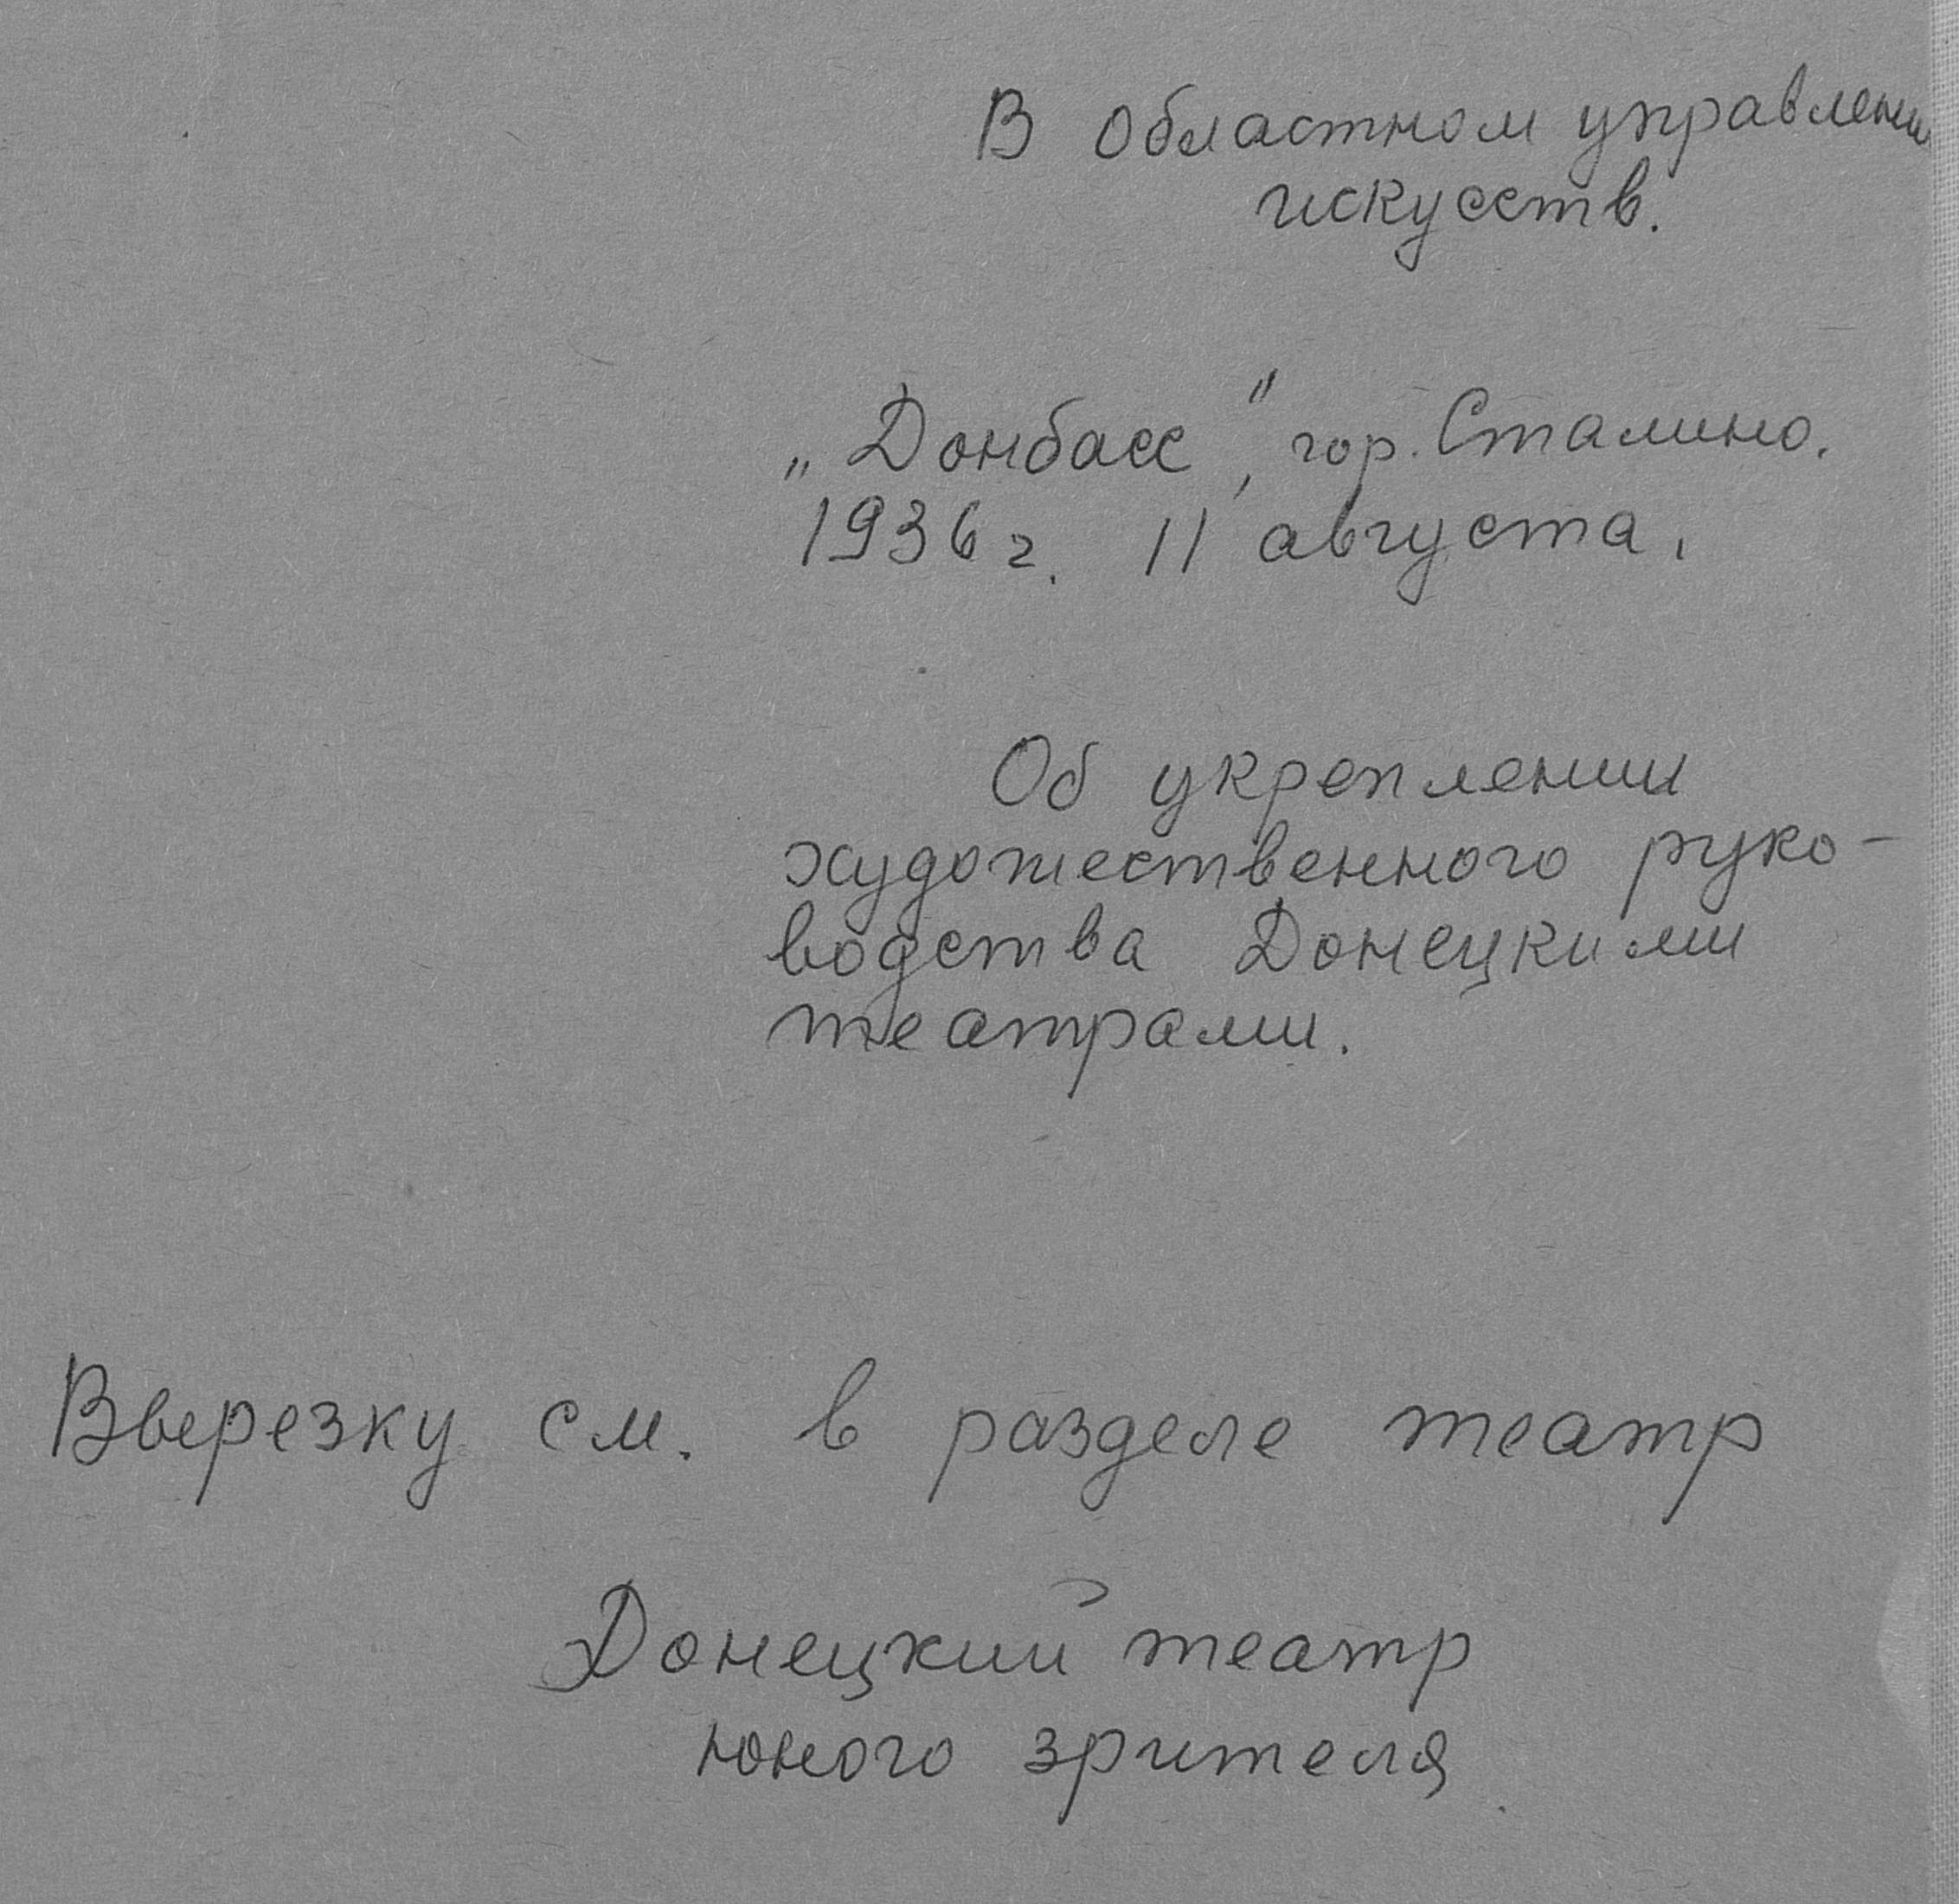 В Областном управлени
искусств.
„Донбасс", гор. Сталино.
1936 г. 11 августа.
Об укреплении
художественного руко-
водства Донецкими
театрами.
Вырезку см. в разделе театр
Донецкий театр
юного зрителя